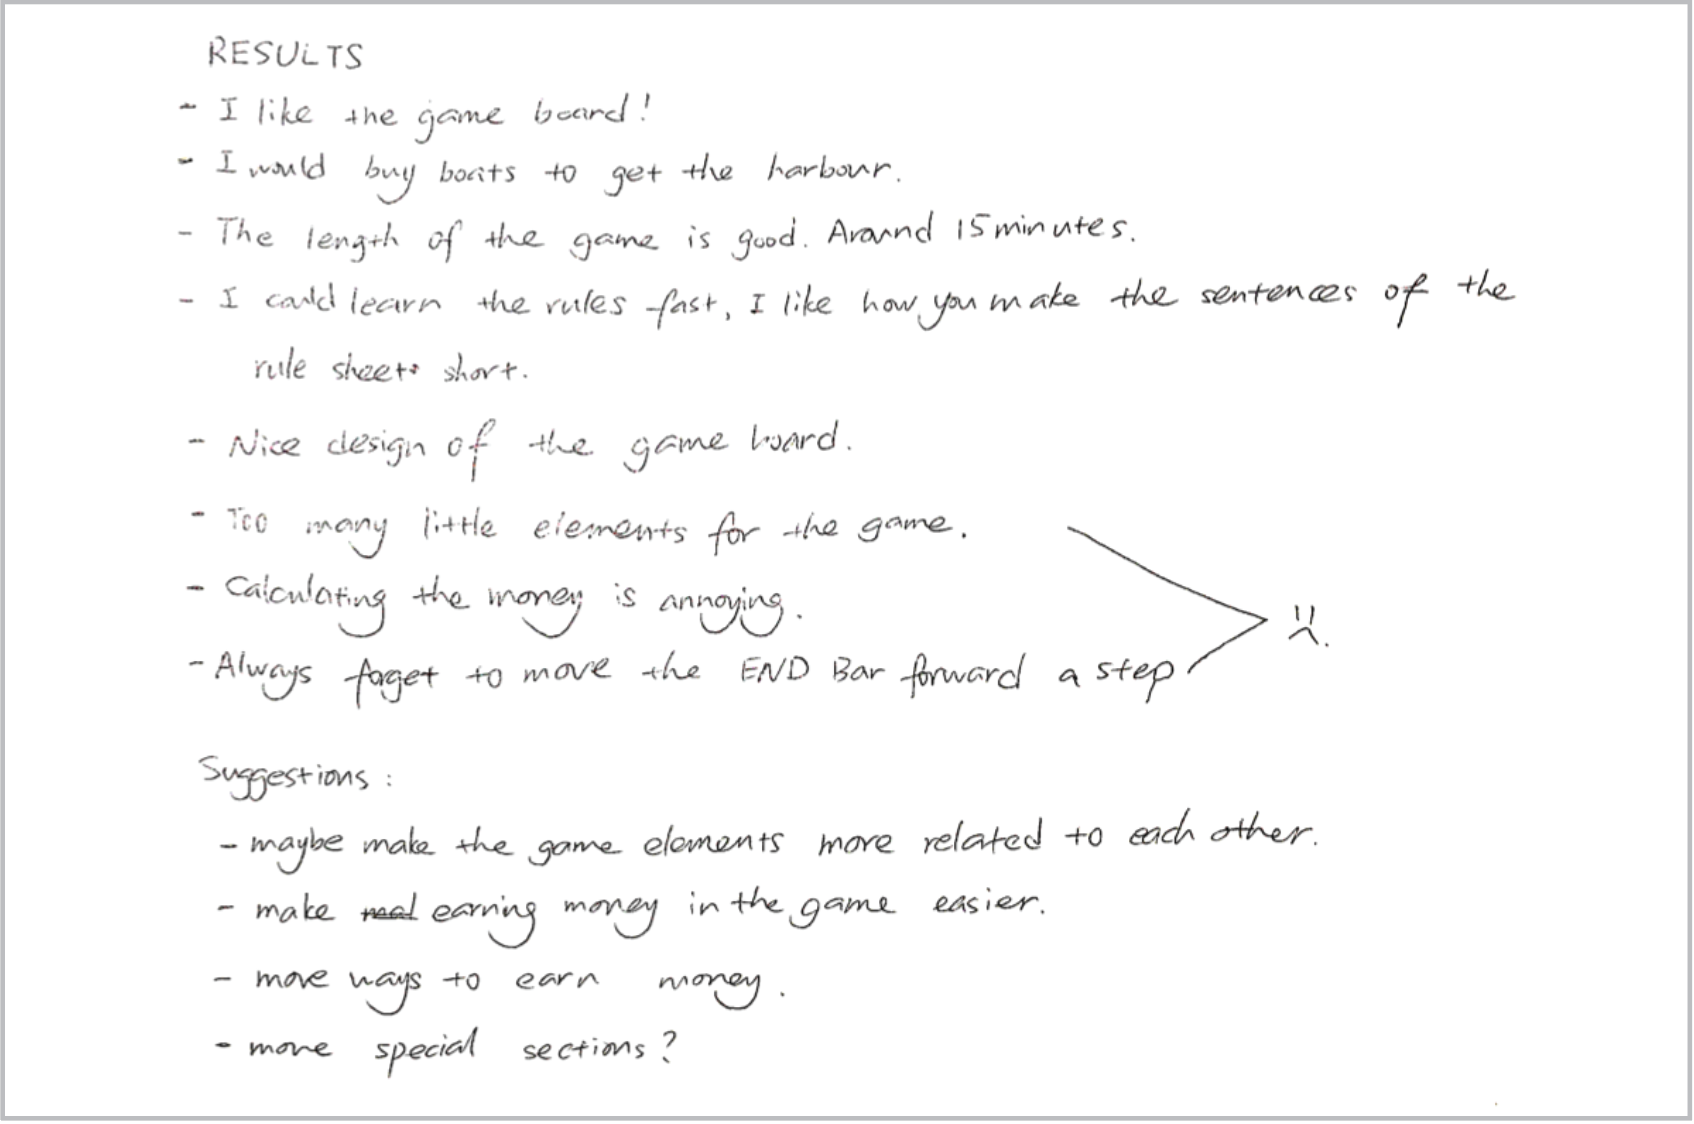 RESULTS
- I like the game board!
- I would buy boats to get the harbour.
- The length of the game is good. Around 15 minutes.
- I could learn the rules fast, I like how you make the sentences of the
rule sheets short.
- Nice design of the game board.
- Too many little elements for the game.
- Calculating the money is annoying.
- Always forget to move the END Bar forward a step
Suggestions :
- maybe make the game elements more related to each other.
- make earning money in the game easier.
- more ways to earn money.
- more special sections?